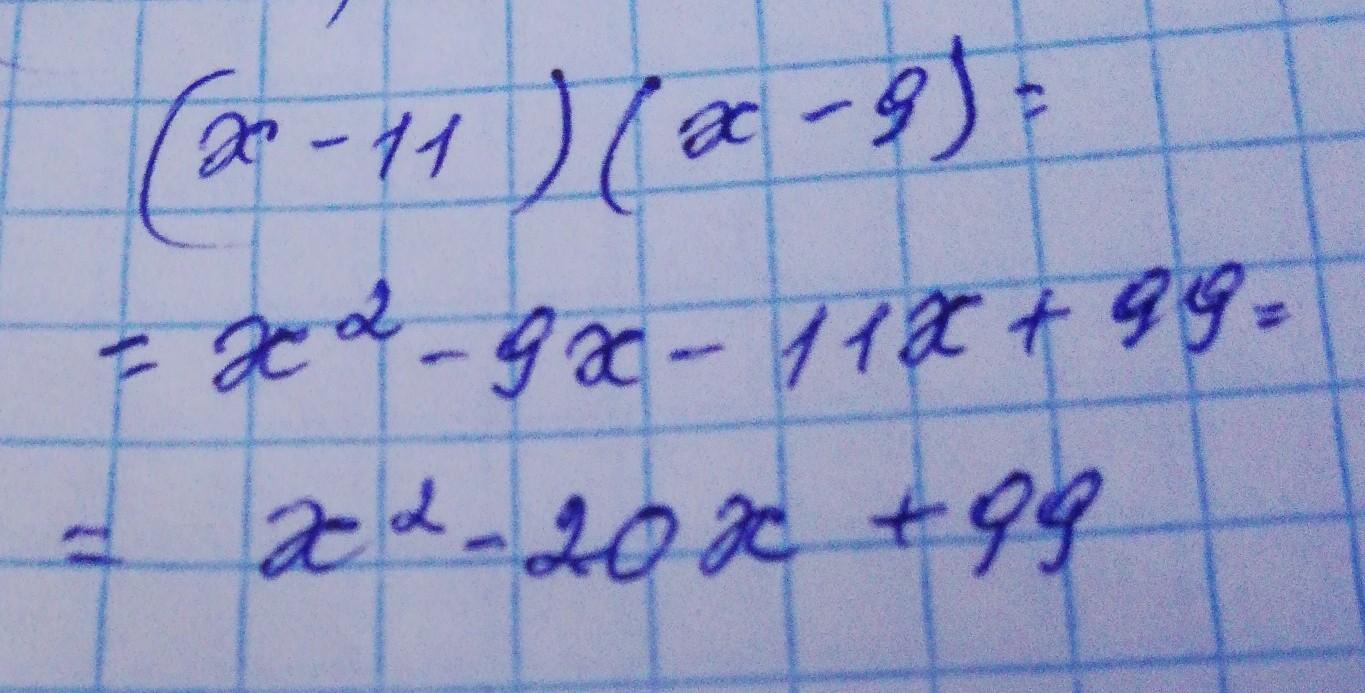 (x - 11)(x - 9) =
= x² - 9x - 11x + 99 =
= x² - 20x + 99